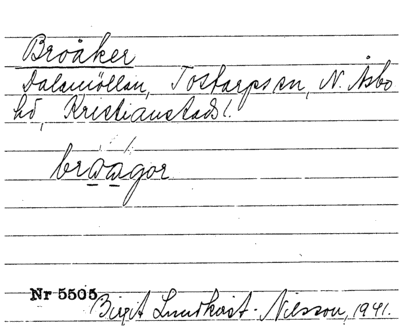 Broåker
Dalamöllan, Tostarps sn, N. Åsbo
hd, Kristianstads l.
broagor
Nr 5505
Birgit Lundkvist-Nilsson, 1941.